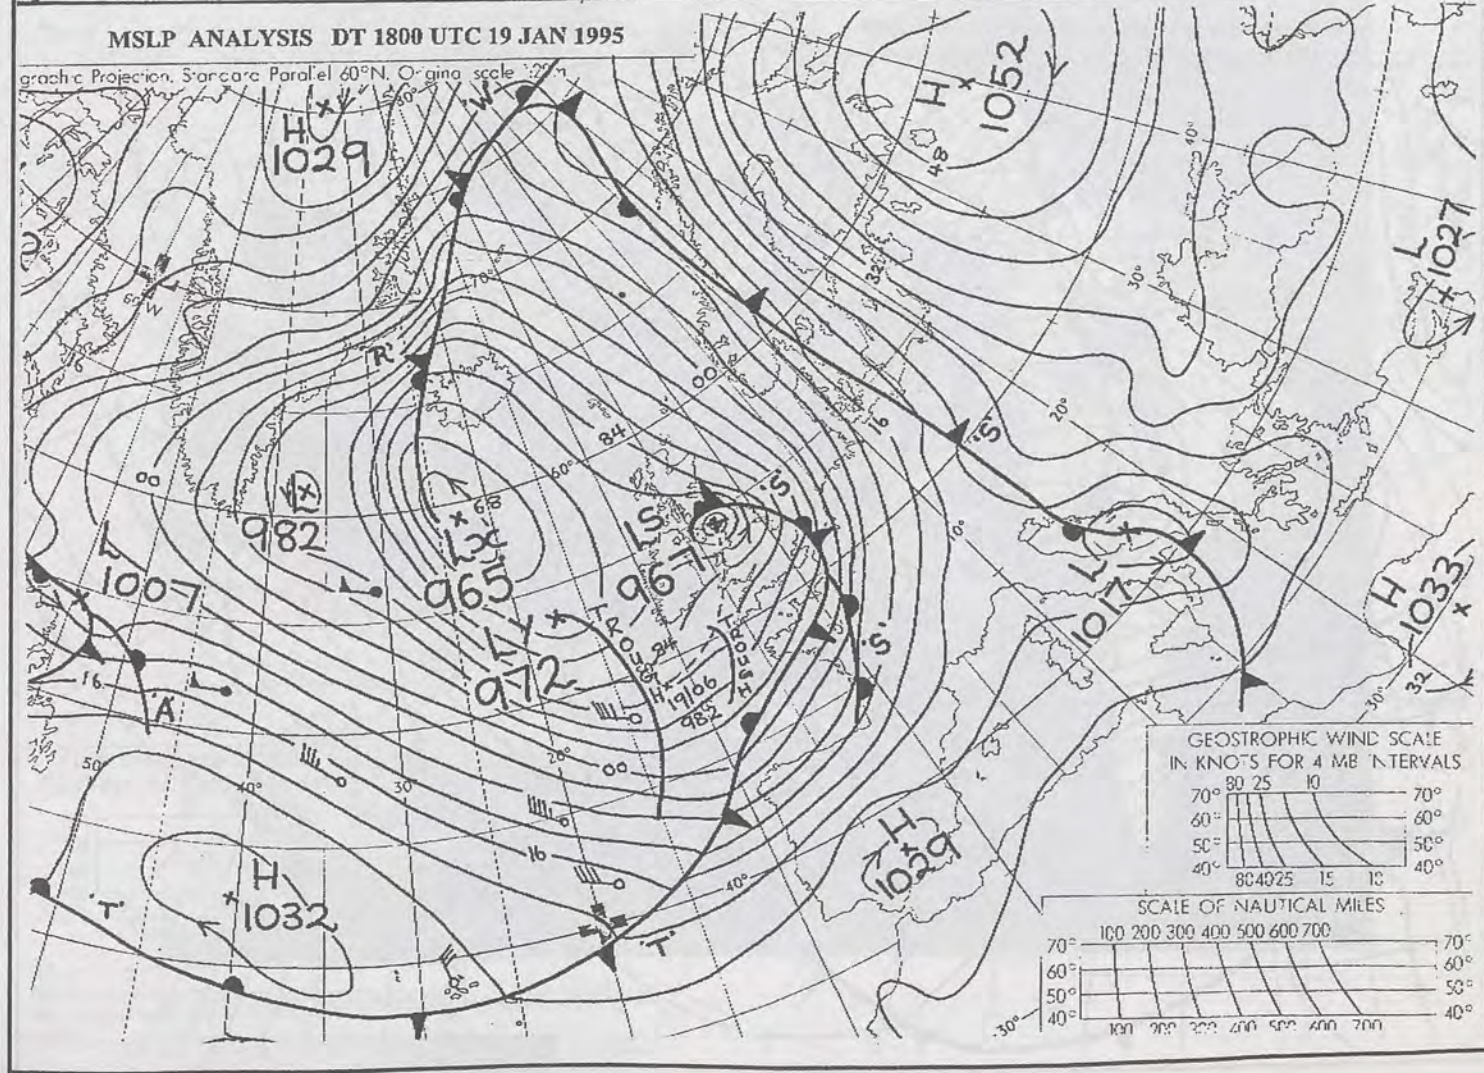 MSLP ANALYSIS DT 1800 UTC 19 JAN 1995
graphic Projection, Standard Parallel 60°N, Original scale 1:20m
H
1029
'W'
H
1052
48
40°
30°
L
1027
60°W
'R'
70°
32
00
16
20°
'S'
84
00
60°
'S'
10°
68
982
L
1007
Lx
965
LS
967
L
1017
H
1033
32
30°
LY
972
TROUGH
84
H
19/06
982
TROUGH
'S'
16
'A'
50°
40°
30°
20°
00
16
40°
H
1032
'T'
'T'
H
1029
GEOSTROPHIC WIND SCALE
IN KNOTS FOR 4 MB INTERVALS
80 25 10
70° 70°
60° 60°
50° 50°
40° 40°
80 40 25 15 10
SCALE OF NAUTICAL MILES
100 200 300 400 500 600 700
70° 70°
60° 60°
50° 50°
40° 40°
100 200 300 400 500 600 700
30°